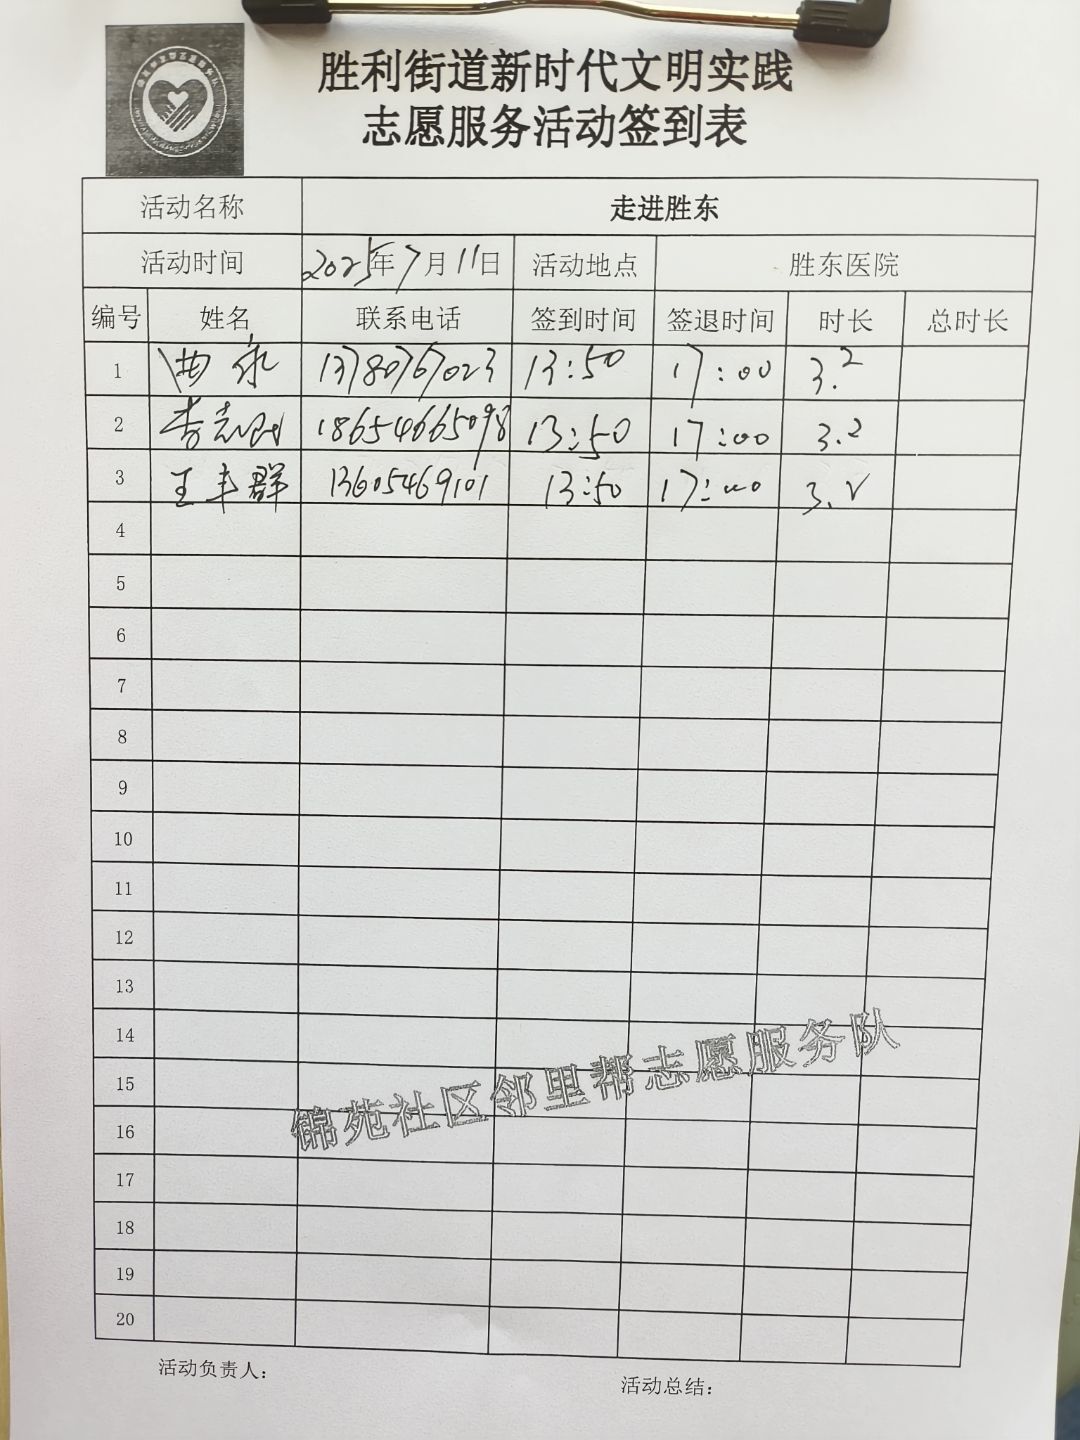 胜利街道新时代文明实践
志愿服务活动签到表
活动名称 走进胜东
活动时间 2025年7月11日 活动地点 胜东医院
编号 姓名 联系电话 签到时间 签退时间 时长 总时长
1 13780767023 13:50 17:00 3.2
2 18654665098 13:50 17:00 3.2
3 王丰群 13605469101 13:50 17:00 3.2
4
5
6
7
8
9
10
11
12
13
14
15
16
17
18
19
20
锦苑社区邻里帮志愿服务队
活动负责人:
活动总结: